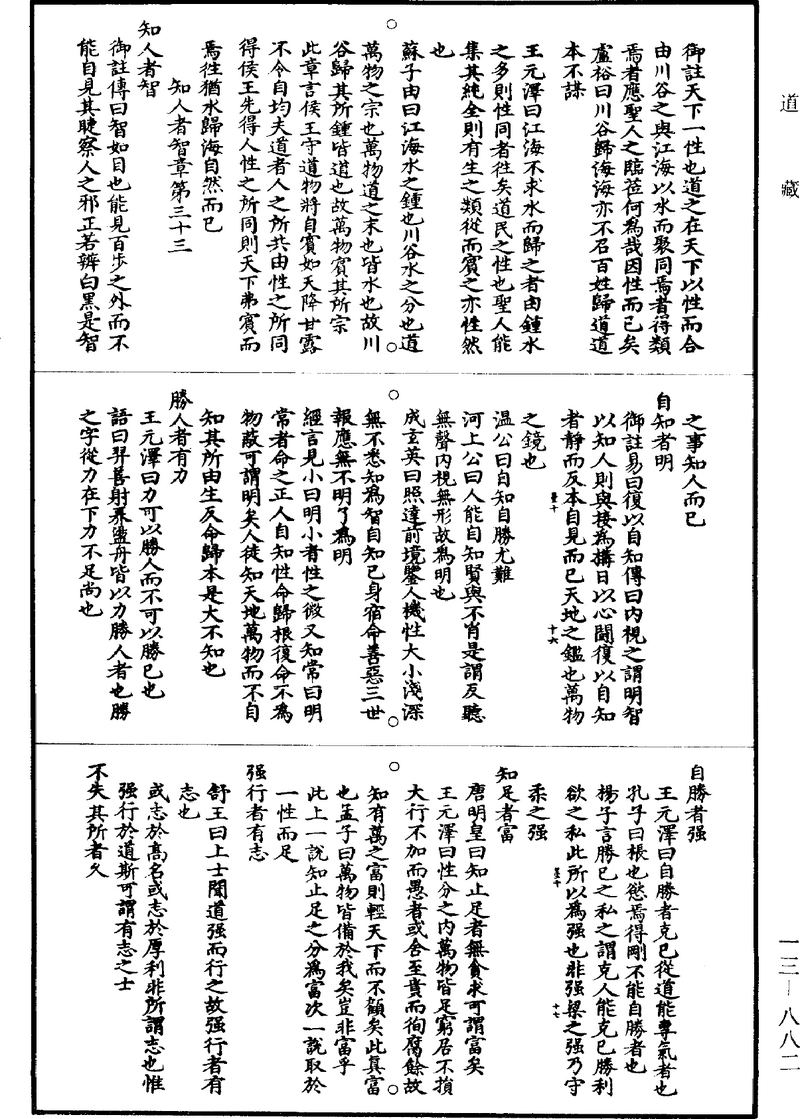 道藏
御註天下一性也道之在天下以性而合
由川谷之與江海以水而聚同焉者得類
焉者應聖人之臨莅何為哉因性而已矣
盧裕曰川谷歸海海亦不召百姓歸道道
本不謀
王元澤曰江海不求水而歸之者由鍾水
之多則性同者往矣道民之性也聖人能
集其純全則有生之類從而賓之亦性然
也
蘇子由曰江海水之鍾也川谷水之分也道
萬物之宗也萬物道之末也皆水也故川
谷歸其所鍾皆道也故萬物賓其所宗
此章言侯王守道物將自賓如天降甘露
不令自均夫道者人之所共由性之所同
得侯王先得人性之所同則天下弗賓而
焉往猶水歸海自然而已
知人者智章第三十三
知人者智
御註傳曰智如目也能見百步之外而不
能自見其睫察人之邪正若辨白黑是智
之事知人而已
自知者明
御註易曰復以自知傳曰內視之謂明智
以知人則與接為搆日以心鬭復以自知
者靜而反本自見而已天地之鑑也萬物
之鏡也
溫公曰自知自勝尤難
河上公曰人能自知賢與不肖是謂反聽
無聲內視無形故為明也
成玄英曰照達前境鑒人機性大小淺深
無不悉知為智自知己身宿命善惡三世
報應無不明了為明
經言見小曰明小者性之微又知常曰明
常者命之正人自知性命歸根復命不為
物蔽可謂明矣人徒知天地萬物而不自
知其所由生反命歸本是大不知也
勝人者有力
王元澤曰力可以勝人而不可以勝己也
語曰羿善射奡盪舟皆以力勝人者也勝
之字從力在下力不足尚也
自勝者强
王元澤曰自勝者克己從道能專氣者也
孔子曰棖也慾焉得剛不能自勝者也
揚子言勝己之私之謂克人能克己勝利
欲之私此所以為强也非强梁之强乃守
柔之强
知足者富
唐明皇曰知止足者無貪求可謂富矣
王元澤曰性分之內萬物皆足窮居不損
大行不加而愚者或舍至貴而徇腐餘故
知有萬之富則輕天下而不顧矣此真富
也孟子曰萬物皆備於我矣豈非富乎
此上一說知止足之分為富次一說取於
一性而足
强行者有志
舒王曰上士聞道强而行之故强行者有
志也
或志於髙名或志於厚利非所謂志也惟
强行於道斯可謂有志之士
不失其所者久
一三—八八二